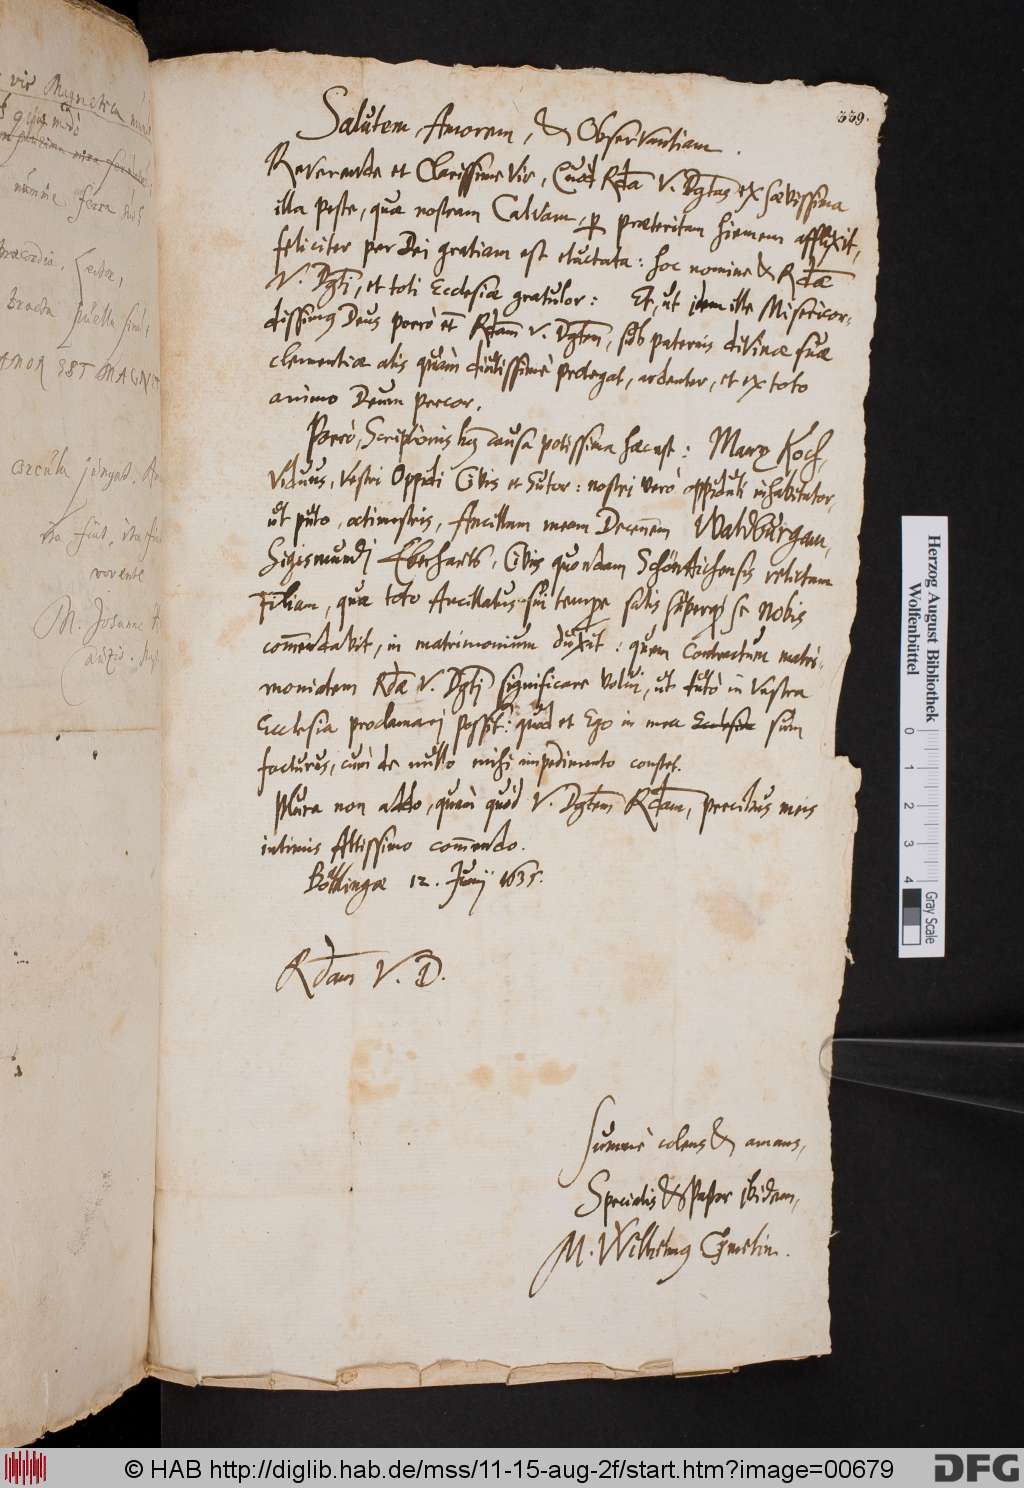 vis Magnetica
AMOR EST MAGN
arcula jungat.
ita fiat, ita fi
vovente
M. Josanne
339.
Salutem, Amorem, & Observantiam.
Reverende et Clarissime Vir, Quod Rda V. Dgtas ex saevissima
illa peste, quae nostram Calvam, p praeteritam hiemem afflixit,
feliciter per Dei gratiam est eluctata: hoc nomine & Rdae
V. Dgti, et toti Ecclesiae gratulor: Et, ut idem ille Misericor-
dissimus Deus porrò et Rdam V. Dgtem, sub paternis divinae suae
clementiae alis quàm diutissimè protegat, ardenter, et ex toto
animo Deum precor.
Porrò, Scriptionis huj causa potissima haec est: Marx Koch,
Viduus, Vestri Oppidi Civis et Sutor: nostri verò oppiduli inhabitator,
ut puto, octimestris, Ancillam meam Decennem Waldburgam,
Sigismundj Eberharts, Civis quondam Schönaichensis relictam
Filiam, quae toto Ancillatus sui tempore satis superq se nobis
commendavit, in matrimonium duxit: quem Contractum matri-
monialem Rdae V. Dgtj significare volui, ut tutò in Vestra
Ecclesia proclamarj possit: quod et Ego in mea Ecclesia sum
facturus, cum de nullo mihi impedimento constet.
Plura non addo, quàm quòd V. Dgtem Rdam, precibus meis
intimis Altissimo commendo.
Böblingae 12. Junij 1635.
Rdam V. D.
Summè colens & amans,
Specialis & Pastor ibidem,
M. Wilhelmus Gmelin.
Herzog August Bibliothek
Wolfenbüttel
0 1 2 3 4
Gray Scale
© HAB http://diglib.hab.de/mss/11-15-aug-2f/start.htm?image=00679
DFG